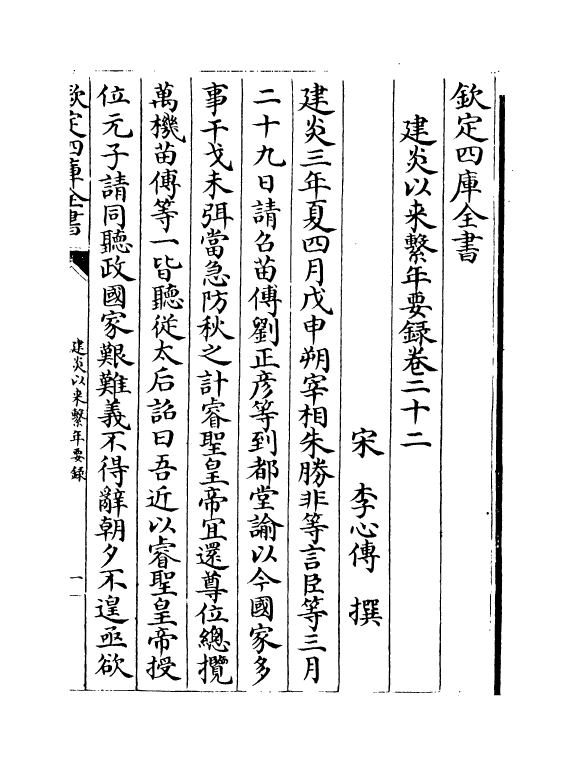 欽定四庫全書
建炎以来繫年要録卷二十二
宋　李心傳　撰
建炎三年夏四月戊申朔宰相朱勝非等言臣等三月
二十九日請召苗傅劉正彦等到都堂諭以今國家多
事干戈未弭當急防秋之計睿聖皇帝宜還尊位總攬
萬機苗傅等一皆聽從太后詔曰吾近以睿聖皇帝授
位元子請同聽政國家艱難義不得辭朝夕不遑亟欲
欽定四庫全書
建炎以来繫年要録
一